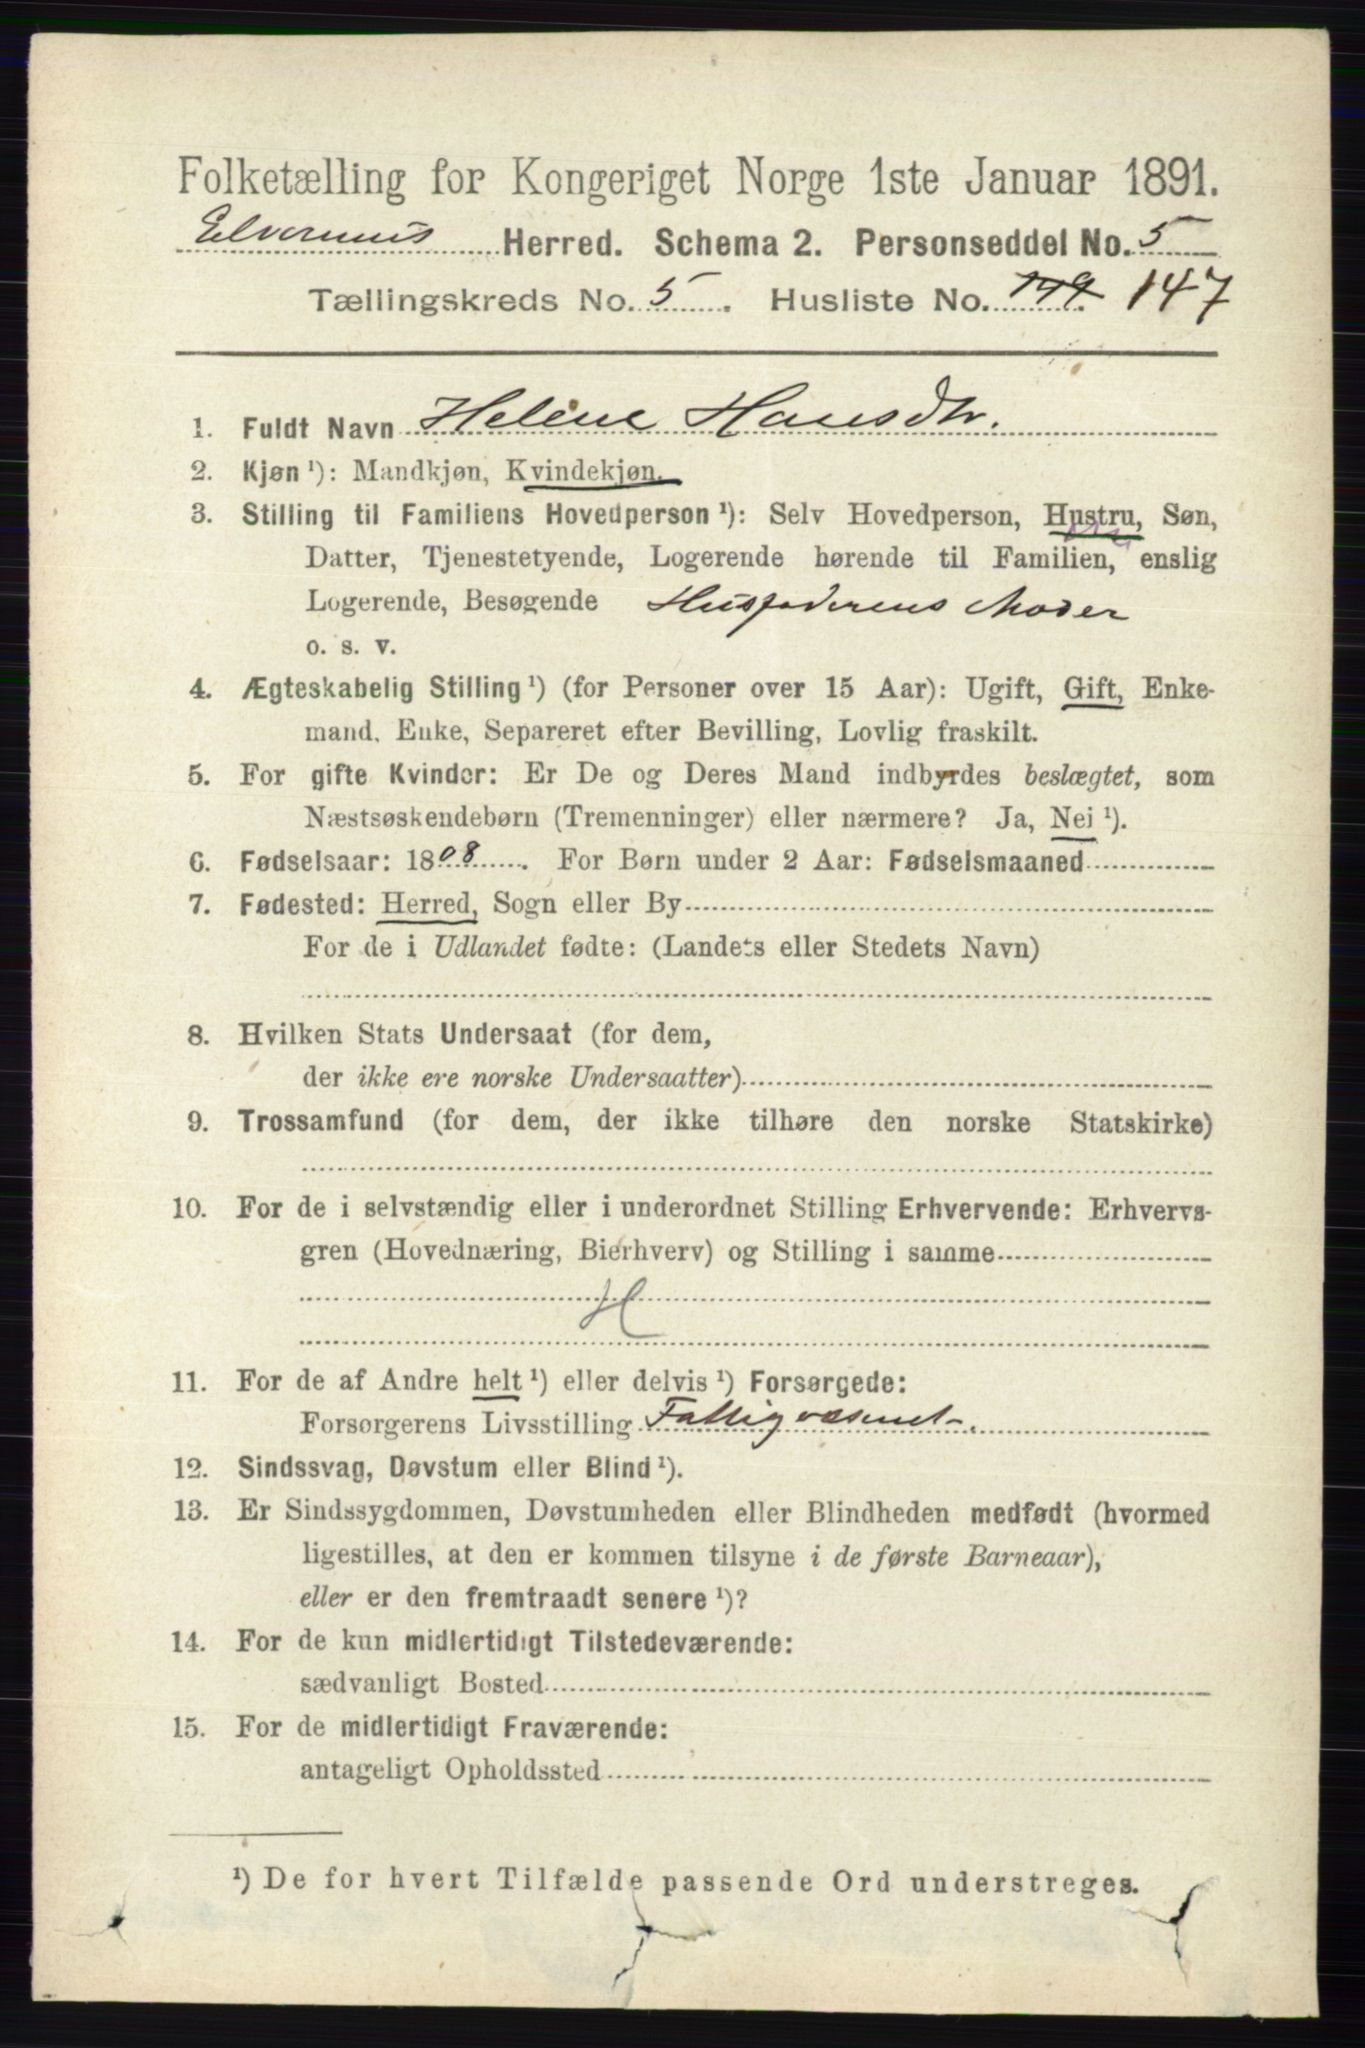 Folketælling for Kongeriget Norge 1ste Januar 1891.
Elverums Herred. Schema 2. Personseddel No. 5
Tællingskreds No. 5. Husliste No. 149 147
1. Fuldt Navn Helene Hansdtr.
2. Kjøn ¹): Mandkjøn, Kvindekjøn.
3. Stilling til Familiens Hovedperson ¹): Selv Hovedperson, Hustru, Søn,
Datter, Tjenestetyende, Logerende hørende til Familien, enslig
Logerende, Besøgende Husfaderens Moder
o. s. v.
4. Ægteskabelig Stilling ¹) (for Personer over 15 Aar): Ugift, Gift, Enke-
mand, Enke, Separeret efter Bevilling, Lovlig fraskilt.
5. For gifte Kvinder: Er De og Deres Mand indbyrdes beslægtet, som
Næstsøskendebørn (Tremenninger) eller nærmere? Ja, Nei ¹).
6. Fødselsaar: 1808. For Børn under 2 Aar: Fødselsmaaned
7. Fødested: Herred, Sogn eller By
For de i Udlandet fødte: (Landets eller Stedets Navn)
8. Hvilken Stats Undersaat (for dem,
der ikke ere norske Undersaatter)
9. Trossamfund (for dem, der ikke tilhøre den norske Statskirke)
10. For de i selvstændig eller i underordnet Stilling Erhvervende: Erhvervs-
gren (Hovednæring, Bierhverv) og Stilling i samme
H
11. For de af Andre helt ¹) eller delvis ¹) Forsørgede:
Forsørgerens Livsstilling Fattigvæsenet.
12. Sindssvag, Døvstum eller Blind ¹).
13. Er Sindssygdommen, Døvstumheden eller Blindheden medfødt (hvormed
ligestilles, at den er kommen tilsyne i de første Barneaar),
eller er den fremtraadt senere ¹)?
14. For de kun midlertidigt Tilstedeværende:
sædvanligt Bosted
15. For de midlertidigt Fraværende:
antageligt Opholdssted
¹) De for hvert Tilfælde passende Ord understreges.